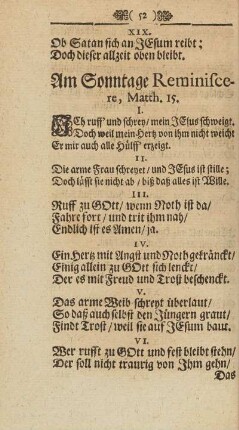 ( 52 )
XIX.
Ob Satan sich an JEsum reibt;
Doch dieser allzeit oben bleibt.
Am Sonntage Reminisce-
re, Matth. 15.
I.
ICh ruff' und schrey / mein JEsus schweigt.
Doch weil mein Hertz von ihm nicht weicht
Er mir auch alle Hülff' erzeigt.
II.
Die arme Frau schreyet / und JEsus ist stille;
Doch läst sie nicht ab / biß daß alles ist Wille.
III.
Ruff zu GOtt / wenn Noth ist da /
Fahre fort / und trit ihm nah /
Endlich ist es Amen / ja.
IV.
Ein Hertz mit Angst und Noth gekränckt /
Einig allein zu GOtt sich lenckt /
Der es mit Freud und Trost beschenckt.
V.
Das arme Weib schreyt überlaut /
So daß auch selbst den Jüngern graut /
Findt Trost / weil sie auf JEsum baut.
VI.
Wer rufft zu GOtt und fest bleibt stehn /
Der soll nicht traurig von Ihm gehn /
Das